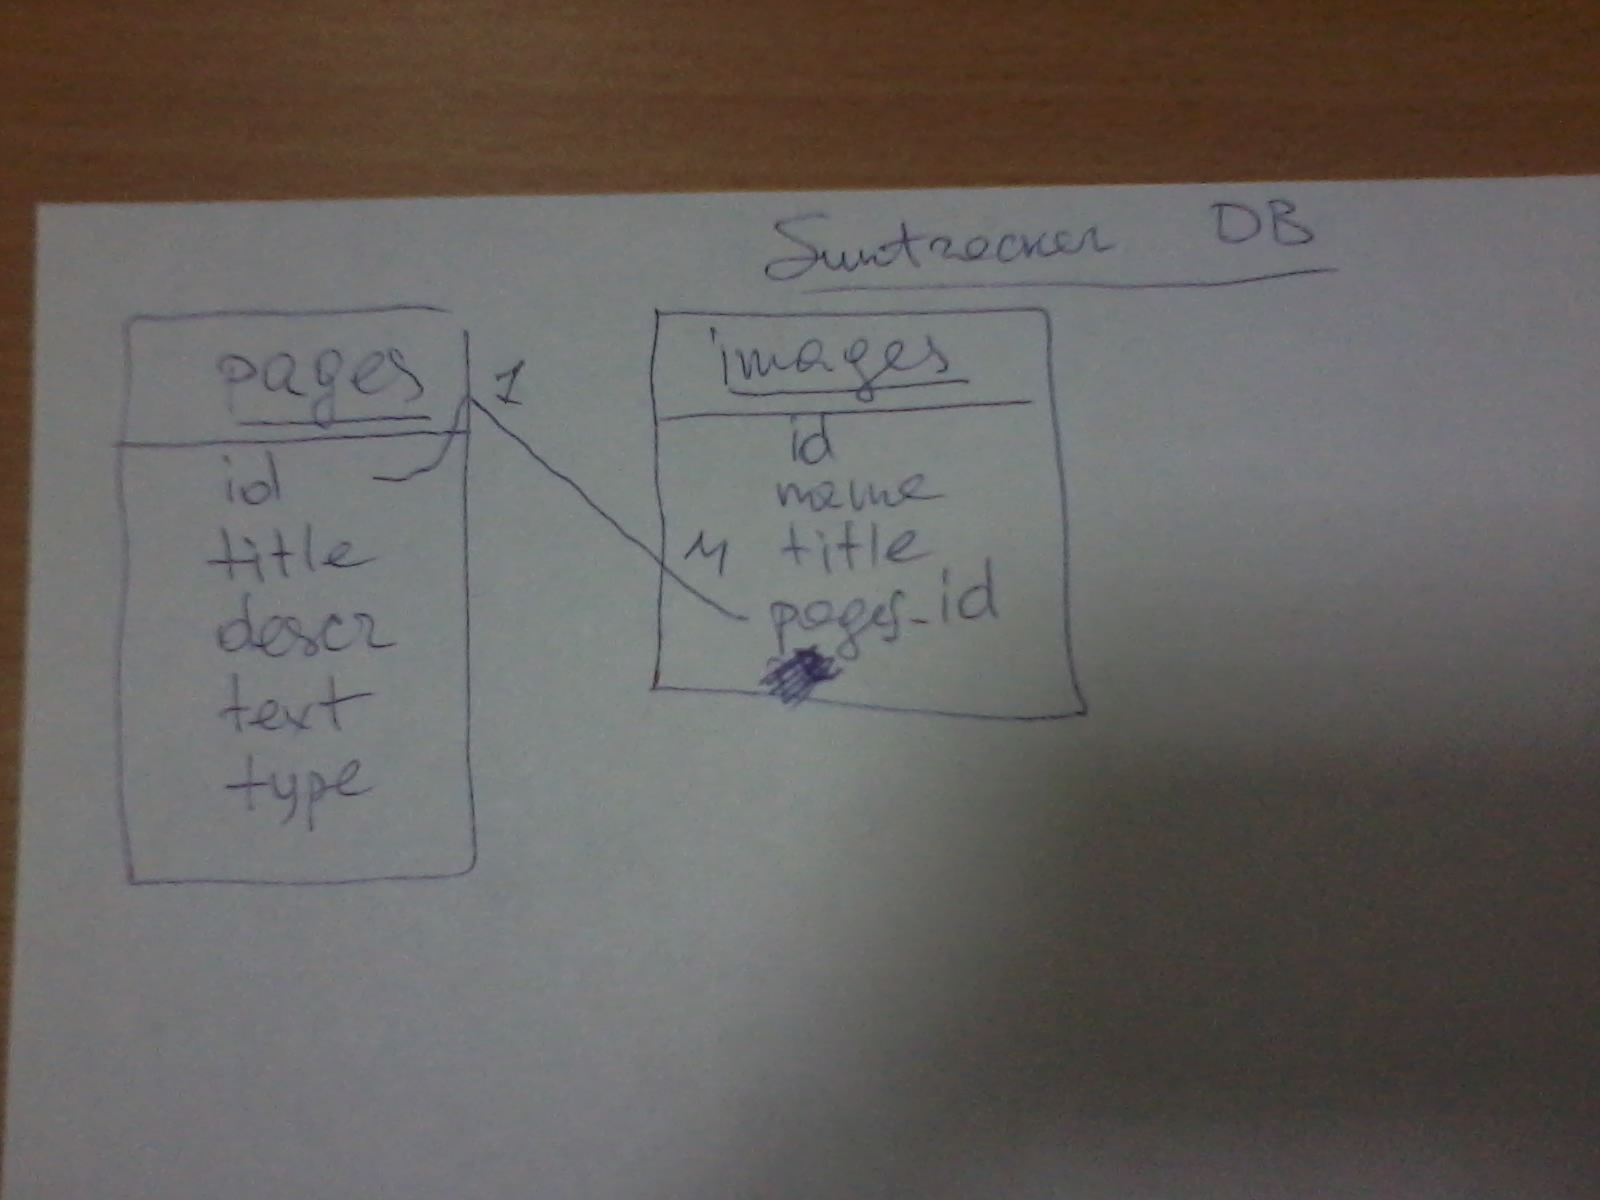 Suntracker DB
pages
id
title
descr
text
type
1
M
images
id
name
title
pages_id